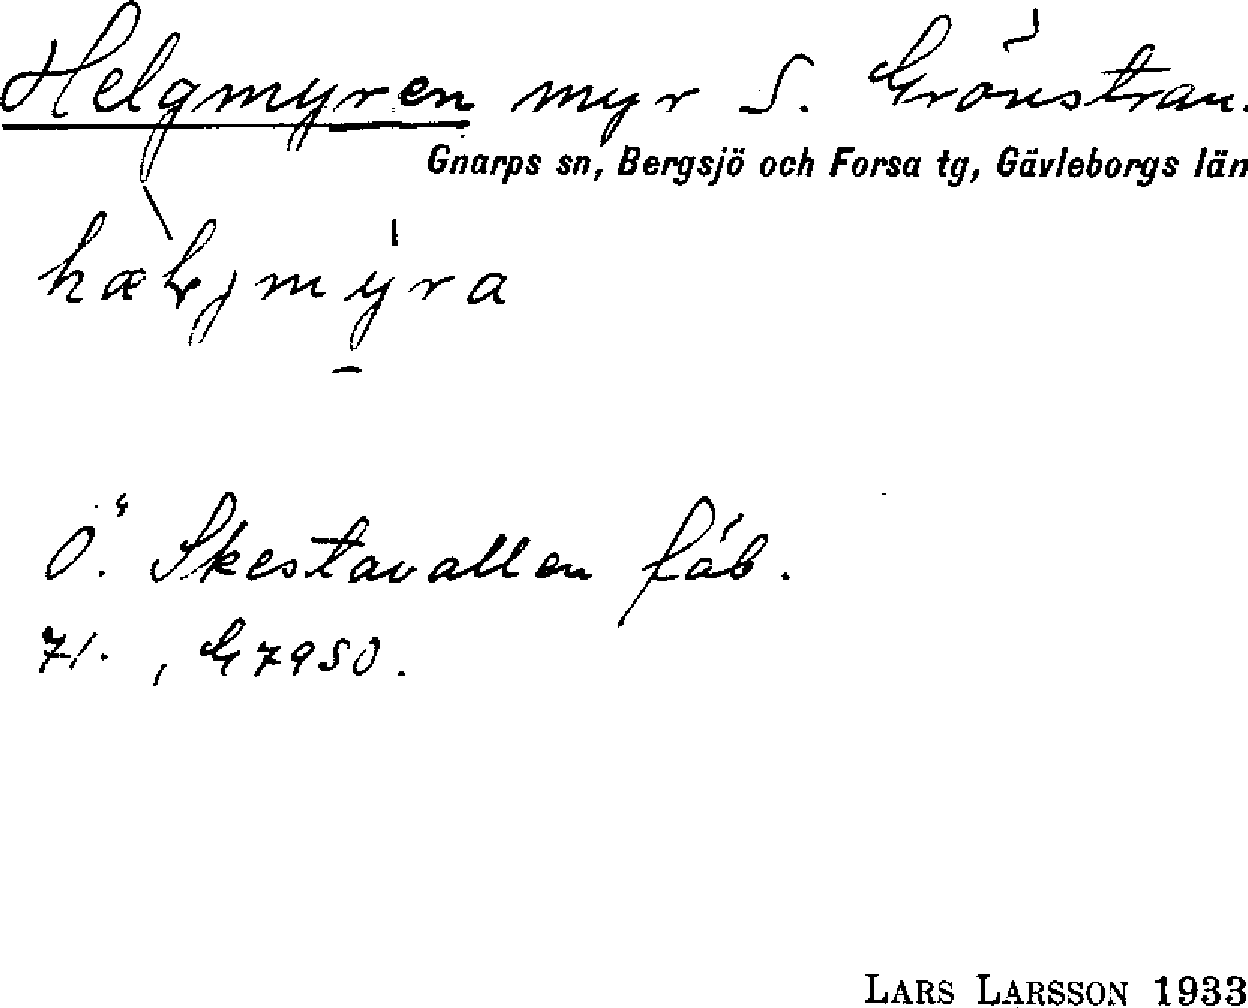 Helgmyren myr S. Grönstran.
Gnarps sn, Bergsjö och Forsa tg, Gävleborgs län
hæljmýra
Ö. Skestavallen fäb.
71. , G7950.
LARS LARSSON 1933